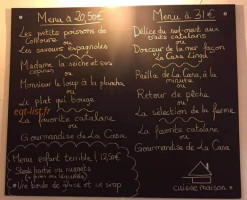 Menu à 20,50€
Les petits poissons de
Collioure
ou
Les saveurs espagnoles
Madame la seiche et son
ou
Monsieur le loup à la plancha
ou
Le plat qui bouge
eat-list.fr
favorite catalane
ou
Gourmandise de La Casa
Menu enfant terrible ! 12,50€
Steak haché ou nuggets
Une boule de glace et un sirop
Menu à 31€
Délice du surf
catalans
ou
Douceur de la mer façon
La Casa
Paëlla de La Casa, à la
minute
ou
Retour de pêche
ou
La sélection de la ferme
La favorite catalane
ou
Gourmandise de La Casa
cuisine maison